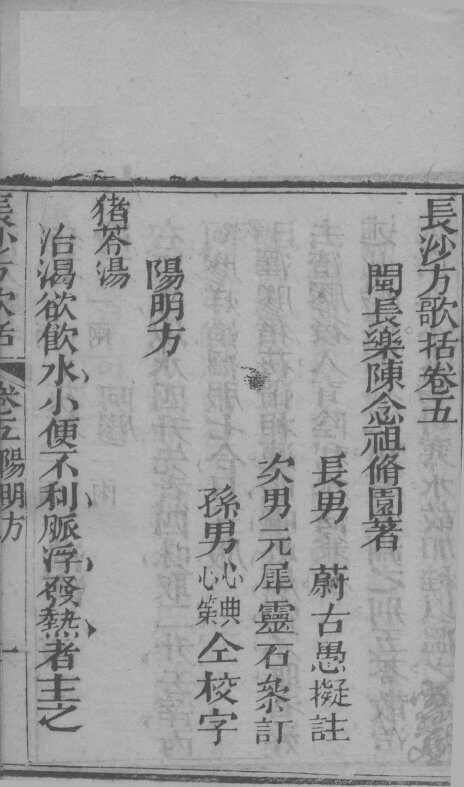 長沙方歌括卷五
閩長樂陳念祖脩園著
長男 蔚古愚擬註
次男元犀靈石叅訂
孫男心典心蘭仝校字
陽明方
猪苓湯
治渴欲飲水小便不利脈浮發熱者主之
長沙方歌括 卷五陽明方 一